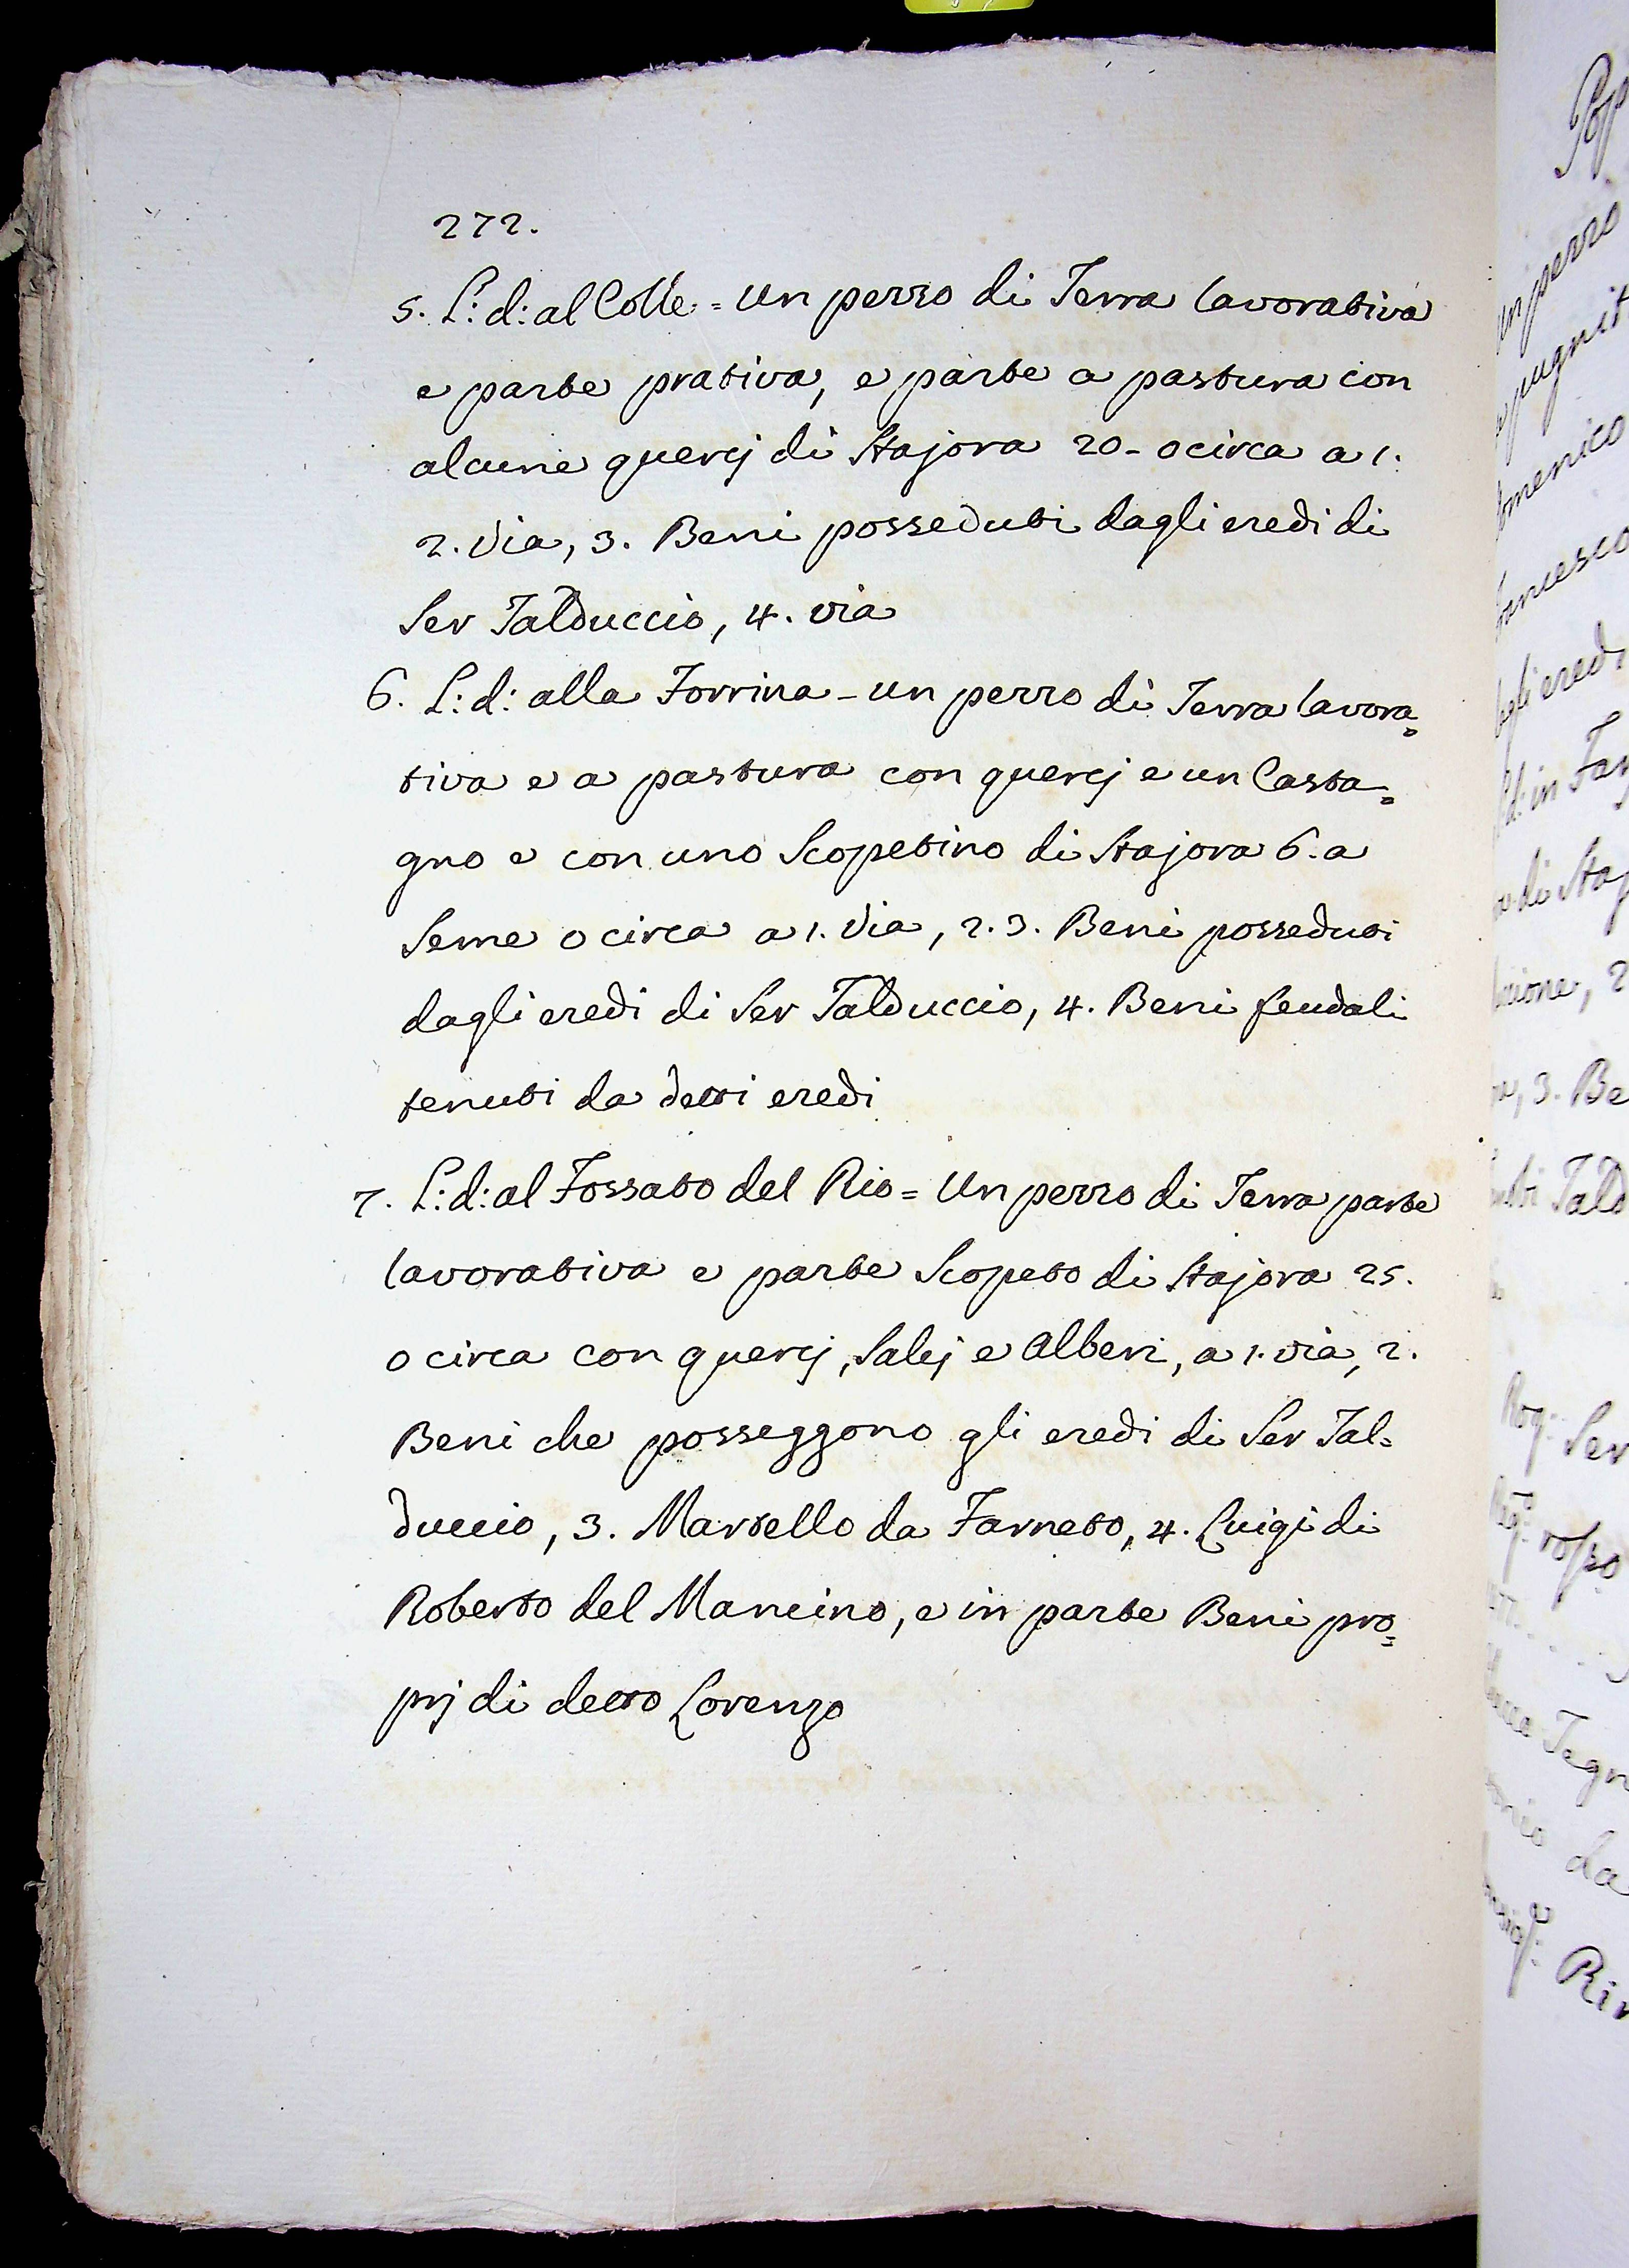 272.
5. L: d: al Colle = Un pezzo di Terra lavorativa
e parte prativa, e parte a pastura con
alcune quercj di Stajora 20 - o circa a 1.
2. Via, 3. Beni posseduti dagli eredi di
Ser Talduccio, 4. via
6. L: d: alla Torrina - un pezzo di Terra lavora=
tiva e a pastura con quercj e un Casta=
gno e con uno Scopetino di Stajora 6. a
Seme o circa a 1. Via, 2. 3. Beni posseduti
dagli eredi di Ser Talduccio, 4. Beni feudali
tenuti da detti eredi
7. L: d: al Fossato del Rio = Un pezzo di Terra parte
lavorativa e parte Scopeto di Stajora 25.
o circa con quercj, Salcj e Alberi, a 1. via, 2.
Beni che posseggono gli eredi di Ser Tal=
duccio, 3. Martello da Farneto, 4. Luigi di
Roberto del Mancino, e in parte Beni pro=
prj di detto Lorenzo